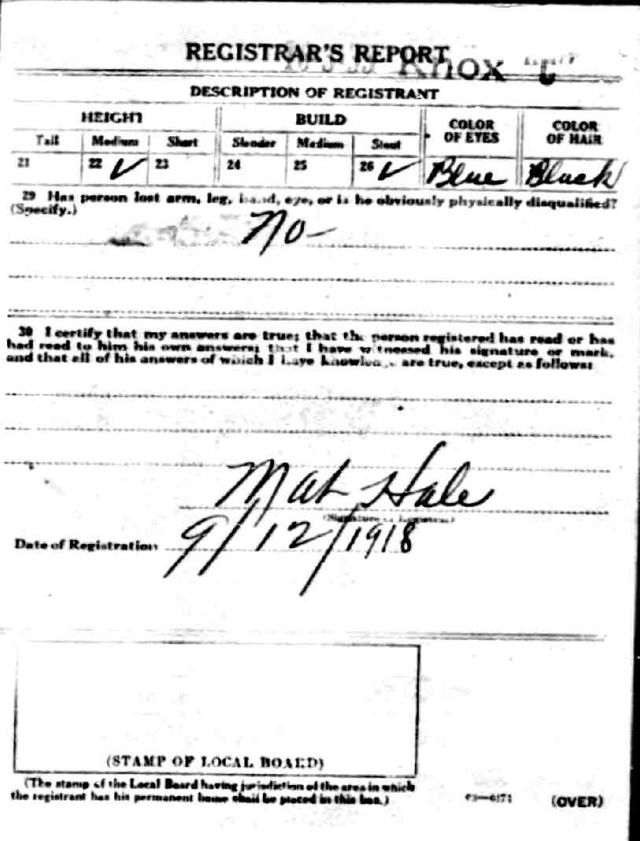 REGISTRAR'S REPORT
Knox
DESCRIPTION OF REGISTRANT
HEIGHT BUILD COLOR OF EYES COLOR OF HAIR
Tall Medium Short Slender Medium Stout
21 22 ✓ 23 24 25 26 ✓ Blue Black
29 Has person lost arm, leg, hand, eye, or is he obviously physically disqualified?
(Specify.)
No-
30 I certify that my answers are true; that the person registered has read or has
had read to him his own answers; that I have witnessed his signature or mark,
and that all of his answers of which I have knowledge are true, except as follows:
Mat Hale
(Signature of Registrar)
Date of Registration 9/12/1918
(STAMP OF LOCAL BOARD)
(The stamp of the Local Board having jurisdiction of the area in which
the registrant has his permanent home shall be placed in this box.)
03—6171 (OVER)